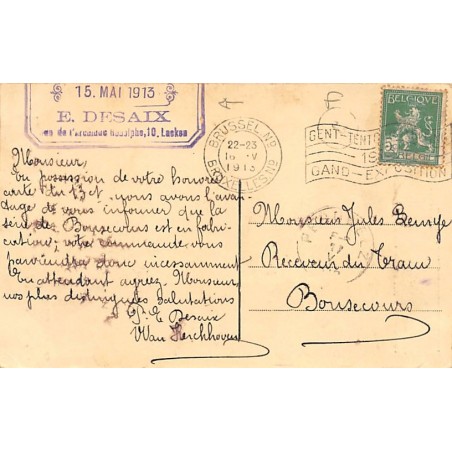 15. MAI 1913
E. DESAIX
Rodolphe, 10, Laeken
BRUSSEL Nº
22-23
1913
BRUXELLES Nº
GENT-TENT
GAND-EXPOSITION
BELGIQUE
5
BELGIË
Monsieur,
En possession de votre honorée
carte du 13 ct, nous avons l'avan-
dage de vous informer que la
série des Bonsecours est en fabri-
cation; votre commande vous
parviendra donc incessamment
En attendant agréez Monsieur,
nos plus distingués salutations
Pr E Desaix
Monsieur Jules
Receveur du Tram
Bonsecours